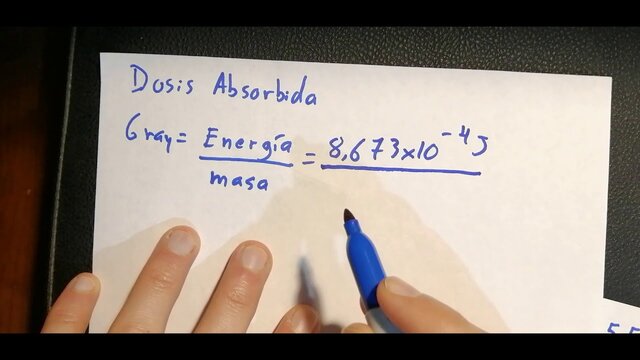 Dosis Absorbida
Gray = Energía / masa = 8,673x10⁻⁴ J